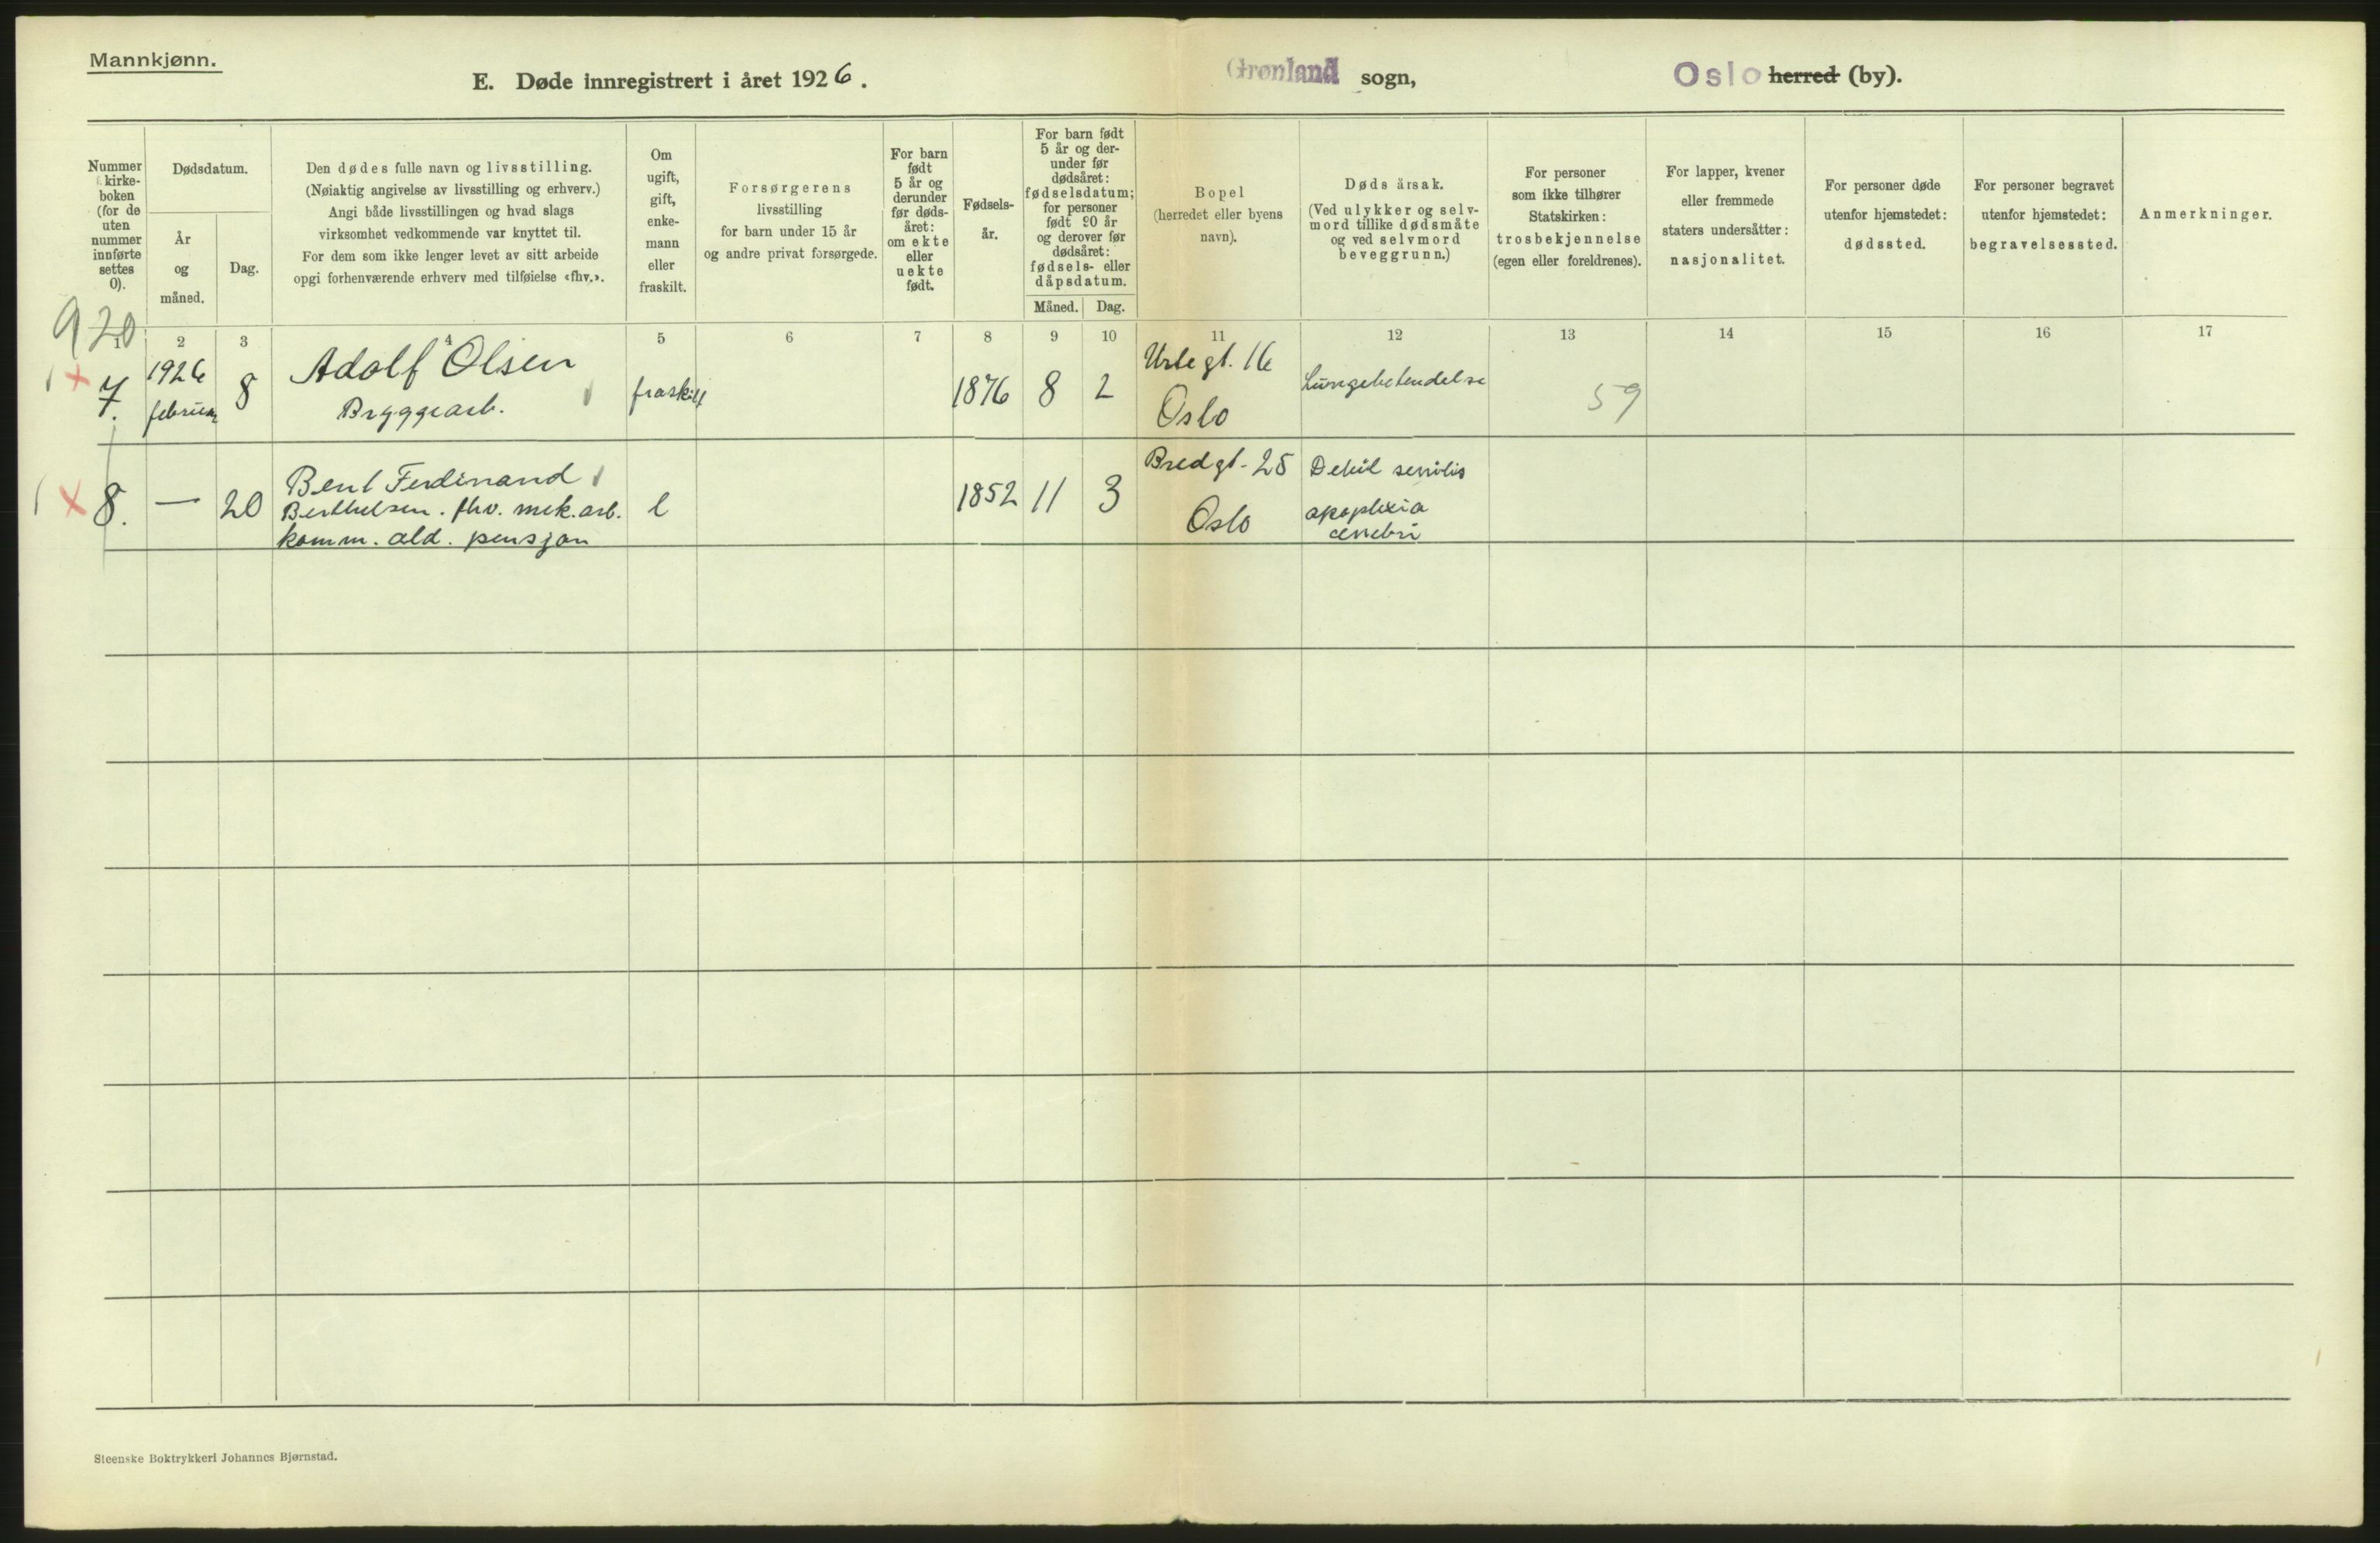 Mannkjønn.
E. Døde innregistrert i året 1926.
Grønland sogn,
Oslo herred (by).
Nummer
i kirke-
boken
(for de
uten
nummer
innførte
settes
0).
Dødsdatum.
År
og
måned.
Dag.
Den dødes fulle navn og livsstilling.
(Nøiaktig angivelse av livsstilling og erhverv.)
Angi både livsstillingen og hvad slags
virksomhet vedkommende var knyttet til.
For dem som ikke lenger levet av sitt arbeide
opgi forhenværende erhverv med tilføielse «fhv.».
Om
ugift,
gift,
enke-
mann
eller
fraskilt.
Forsørgerens
livsstilling
for barn under 15 år
og andre privat forsørgede.
For barn
født
5 år og
derunder
før døds-
året:
om ekte
eller
uekte
født.
Fødsels-
år.
For barn født
5 år og der-
under før
dødsåret:
fødselsdatum;
for personer
født 90 år
og derover før
dødsåret:
fødsels- eller
dåpsdatum.
Måned. Dag.
Bopel
(herredet eller byens
navn).
Døds årsak.
(Ved ulykker og selv-
mord tillike dødsmåte
og ved selvmord
beveggrunn.)
For personer
som ikke tilhører
Statskirken:
trosbekjennelse
(egen eller foreldrenes).
For lapper, kvener
eller fremmede
staters undersåtter:
nasjonalitet.
For personer døde
utenfor hjemstedet:
dødssted.
For personer begravet
utenfor hjemstedet:
begravelsessted.
Anmerkninger.
920
1 2 3 4 5 6 7 8 9 10 11 12 13 14 15 16 17
7.
1926
februar
8
Adolf Olsen
Bryggearb.
fraskilt
1876
8
2
Urtegt. 16
Oslo
Lungebetendelse
59
8.
—
20
Bent Ferdinand
Berthelsen. fhv. mek. arb.
komm. ald. pensjon
e
1852
11
3
Bredgt. 25
Oslo
Debil senilis
apoplexia
cerebri
Steenske Boktrykkeri Johannes Bjørnstad.